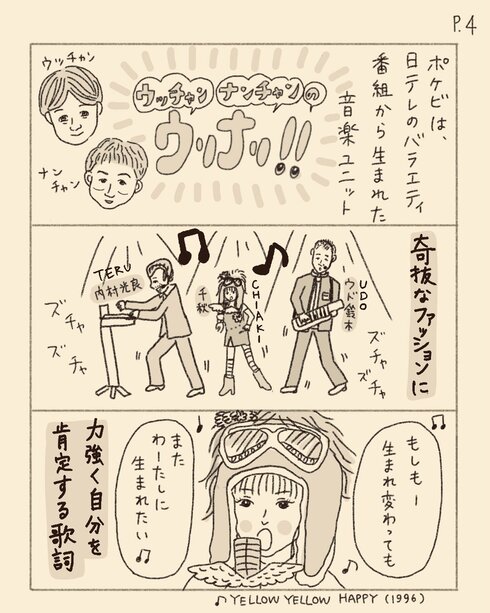 P.4
ポケビは、
日テレのバラエティ
番組から生まれた
音楽ユニット
ウッチャン
ナン
チャン
ウッチャンナンチャンの
ウリナリ!!
奇抜なファッションに
UDO
ウド鈴木
CHIAKI
千秋
TERU
内村光良
ズチャ
ズチャ
ズチャ
ズチャ
もしもー
生まれ変わっても
また
わーたしに
生まれたい♪
力強く自分を
肯定する歌詞
♪YELLOW YELLOW HAPPY (1996)